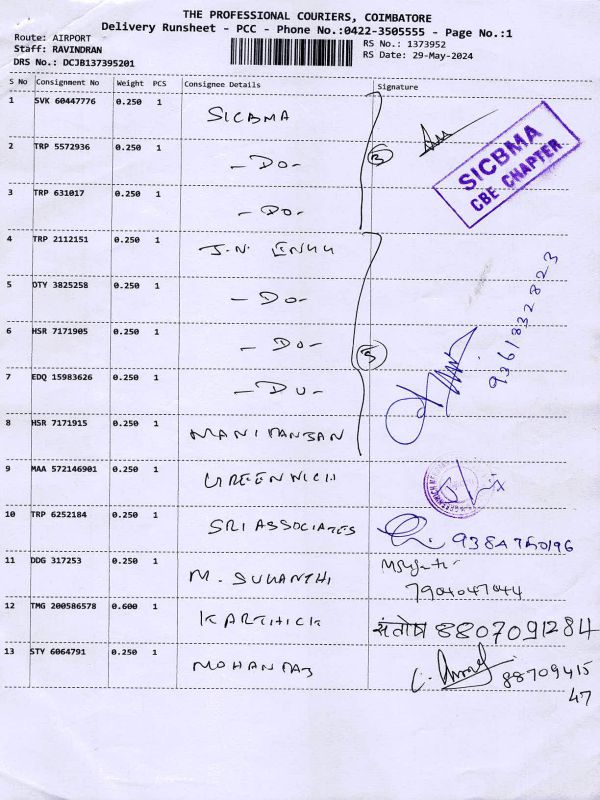 THE PROFESSIONAL COURIERS, COIMBATORE
Delivery Runsheet - PCC - Phone No.:0422-3505555 - Page No.:1
Route: AIRPORT
Staff: RAVINDRAN
DRS No.: DCJB137395201
RS No.: 1373952
RS Date: 29-May-2024
S No Consignment No Weight PCS Consignee Details Signature
1 SVK 60447776 0.250 1 SICBMA
SICBMA
CBE CHAPTER
2 TRP 5572936 0.250 1 -DO- 3
3 TRP 631017 0.250 1 -DO-
4 TRP 2112151 0.250 1 J.N.
5 DTY 3825258 0.250 1 -DO- 9361832823
6 HSR 7171905 0.250 1 -DO- 5
7 EDQ 15983626 0.250 1 -DU-
8 HSR 7171915 0.250 1
9 MAA 572146901 0.250 1 GREENWICH
10 TRP 6252184 0.250 1 SRI ASSOCIATES
11 DDG 317253 0.250 1 M. SUKANTHI
12 TMG 200586578 0.600 1 KARTHICK संतोष 8807091284
13 STY 6064791 0.250 1 MOHANRAJ 88709415
47